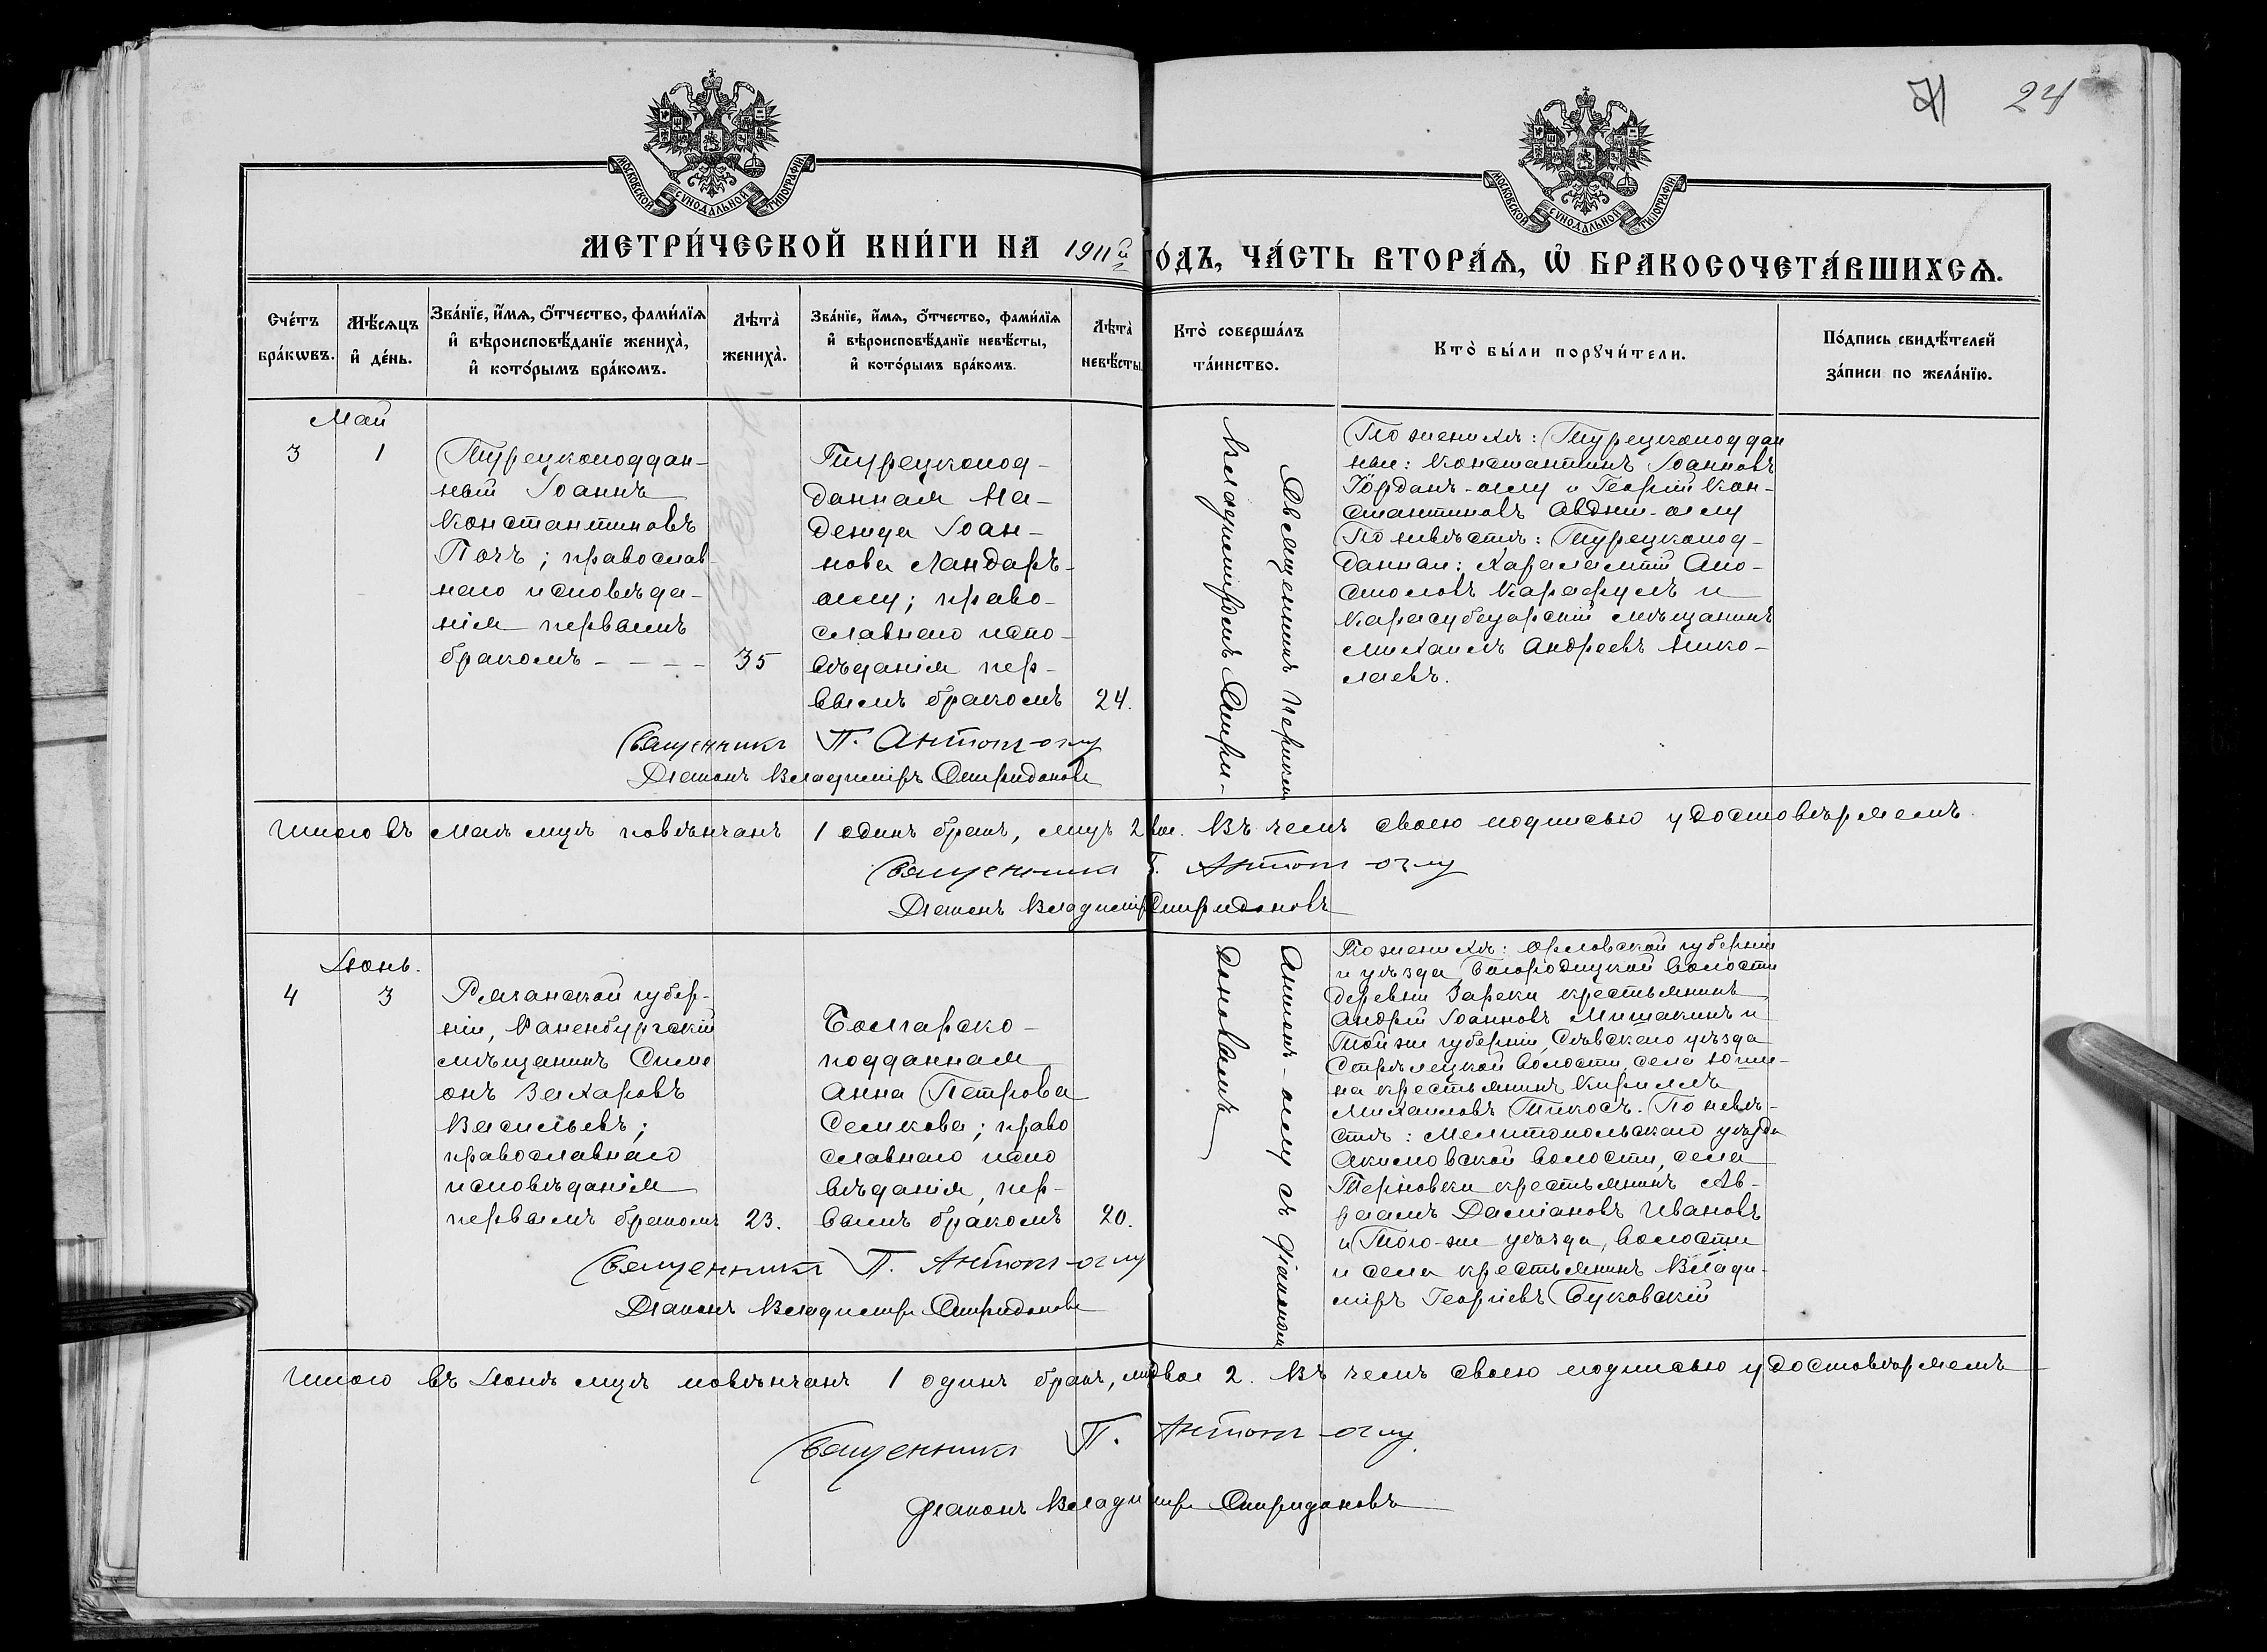 24
МОСКОВСКОЙ СѴНОДАЛЬНОЙ ТИПОГРАФІИ
МОСКОВСКОЙ СѴНОДАЛЬНОЙ ТИПОГРАФІИ
МЕТРИ́ЧЕСКОЙ КНИ́ГИ НА 1911й ГО́ДЪ, ЧА́СТЬ ВТОРА́Ѧ, Ѡ҆ БРАКОСОЧЕТА́ВШИХСѦ.
Сче́тъ бра́кѡвъ.
Мѣ́сѧцъ и҆ де́нь.
Зва́нїе, и҆́мѧ, ѻ҆́тчество, фами́лїѧ
и҆ вѣроисповѣ́данїе жениха̀,
и҆ кото́рымъ бра́комъ.
Лѣта̀ жениха̀.
Зва́нїе, и҆́мѧ, ѻ҆́тчество, фами́лїѧ
и҆ вѣроисповѣ́данїе невѣ́сты,
и҆ кото́рымъ бра́комъ.
Лѣта̀ невѣ́сты.
Кто̀ соверша́лъ та́инство.
Кто̀ бы́ли порꙋчи́тели.
По́дпись свидѣ́телей
за́писи по жела́нїю.
Май
3
1
Турецкоподдан-
ный Іоаннъ
Константиновъ
Почъ; православ-
наго исповѣда-
нія первымъ
бракомъ - - - -
35
Турецкопод-
данная На-
дежда Іоан-
нова Ландаръ-
оглу; право-
славнаго испо-
вѣданія пер-
вымъ бракомъ
24.
Священникъ П. Антонъ-оглу
Діаконъ Владиміръ Спиридоновъ
Священникъ Периклъ
Владиміромъ Спири-
По женихѣ: Турецкоподдан
ные: Константинъ Іоанновъ
Іорданъ-оглу и Георгій Кон-
стантиновъ Авджи-оглу
По невѣстѣ: Турецкопод-
данные: Харалампій Апо-
столовъ Карафулъ и
Карасубазарскій мѣщанинъ
Михаилъ Андреевъ Нико-
лаевъ.
Итого въ маѣ мцѣ повѣнчанъ 1 одинъ бракъ, лицъ 2 двое. Въ чемъ своею подписью удостовѣряемъ.
Священникъ П. Антонъ-оглу
Діаконъ Владиміръ Спиридоновъ
Іюнь.
4
3
Рязанской губер-
ніи, Раненбургскій
мѣщанинъ Симе
онъ Захаровъ
Васильевъ;
православнаго
исповѣданія
первымъ бракомъ
23.
Болгарско-
подданная
Анна Петрова
Семкова; право
славнаго испо
вѣданія, пер-
вымъ бракомъ
20.
Священникъ П. Антонъ-оглу
Діаконъ Владиміръ Спиридоновъ
Антонъ-оглу съ діакономъ
доновымъ
По женихѣ: Орловской губерніи
и уѣзда, Богородицкой волости
деревни Зареки крестьянинъ
Андрей Іоанновъ Мишакинъ и
Той же губерніи, Сѣвскаго уѣзда
Стрѣлецкой волости, села Юши-
на крестьянинъ Кириллъ
Михаиловъ Тикосъ. По невѣ-
стѣ: Мелитопольскаго уѣзда
Акимовской волости, села
Терновки крестьянинъ Ав-
раамъ Даміановъ Ивановъ
и Того-же уѣзда, волости
и села крестьянинъ Влади-
міръ Георгіевъ Буковскій
Итого въ Іюнѣ мцѣ повѣнчанъ 1 одинъ бракъ, лицъ двое 2. Въ чемъ своею подписью удостовѣряемъ
Священникъ П. Антонъ-оглу.
Діаконъ Владиміръ Спиридоновъ